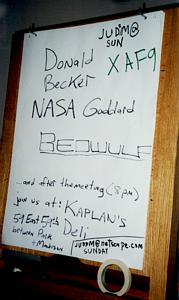 JUDJM@
SUN
Donald
Becker
XAF9
NASA Goddard
BEOWULF
...and after the meeting (8pm)
join us at: KAPLAN'S
59 East 59th Deli
between Park
+ Madison
JUDJM@netscape.com
SUNDAY